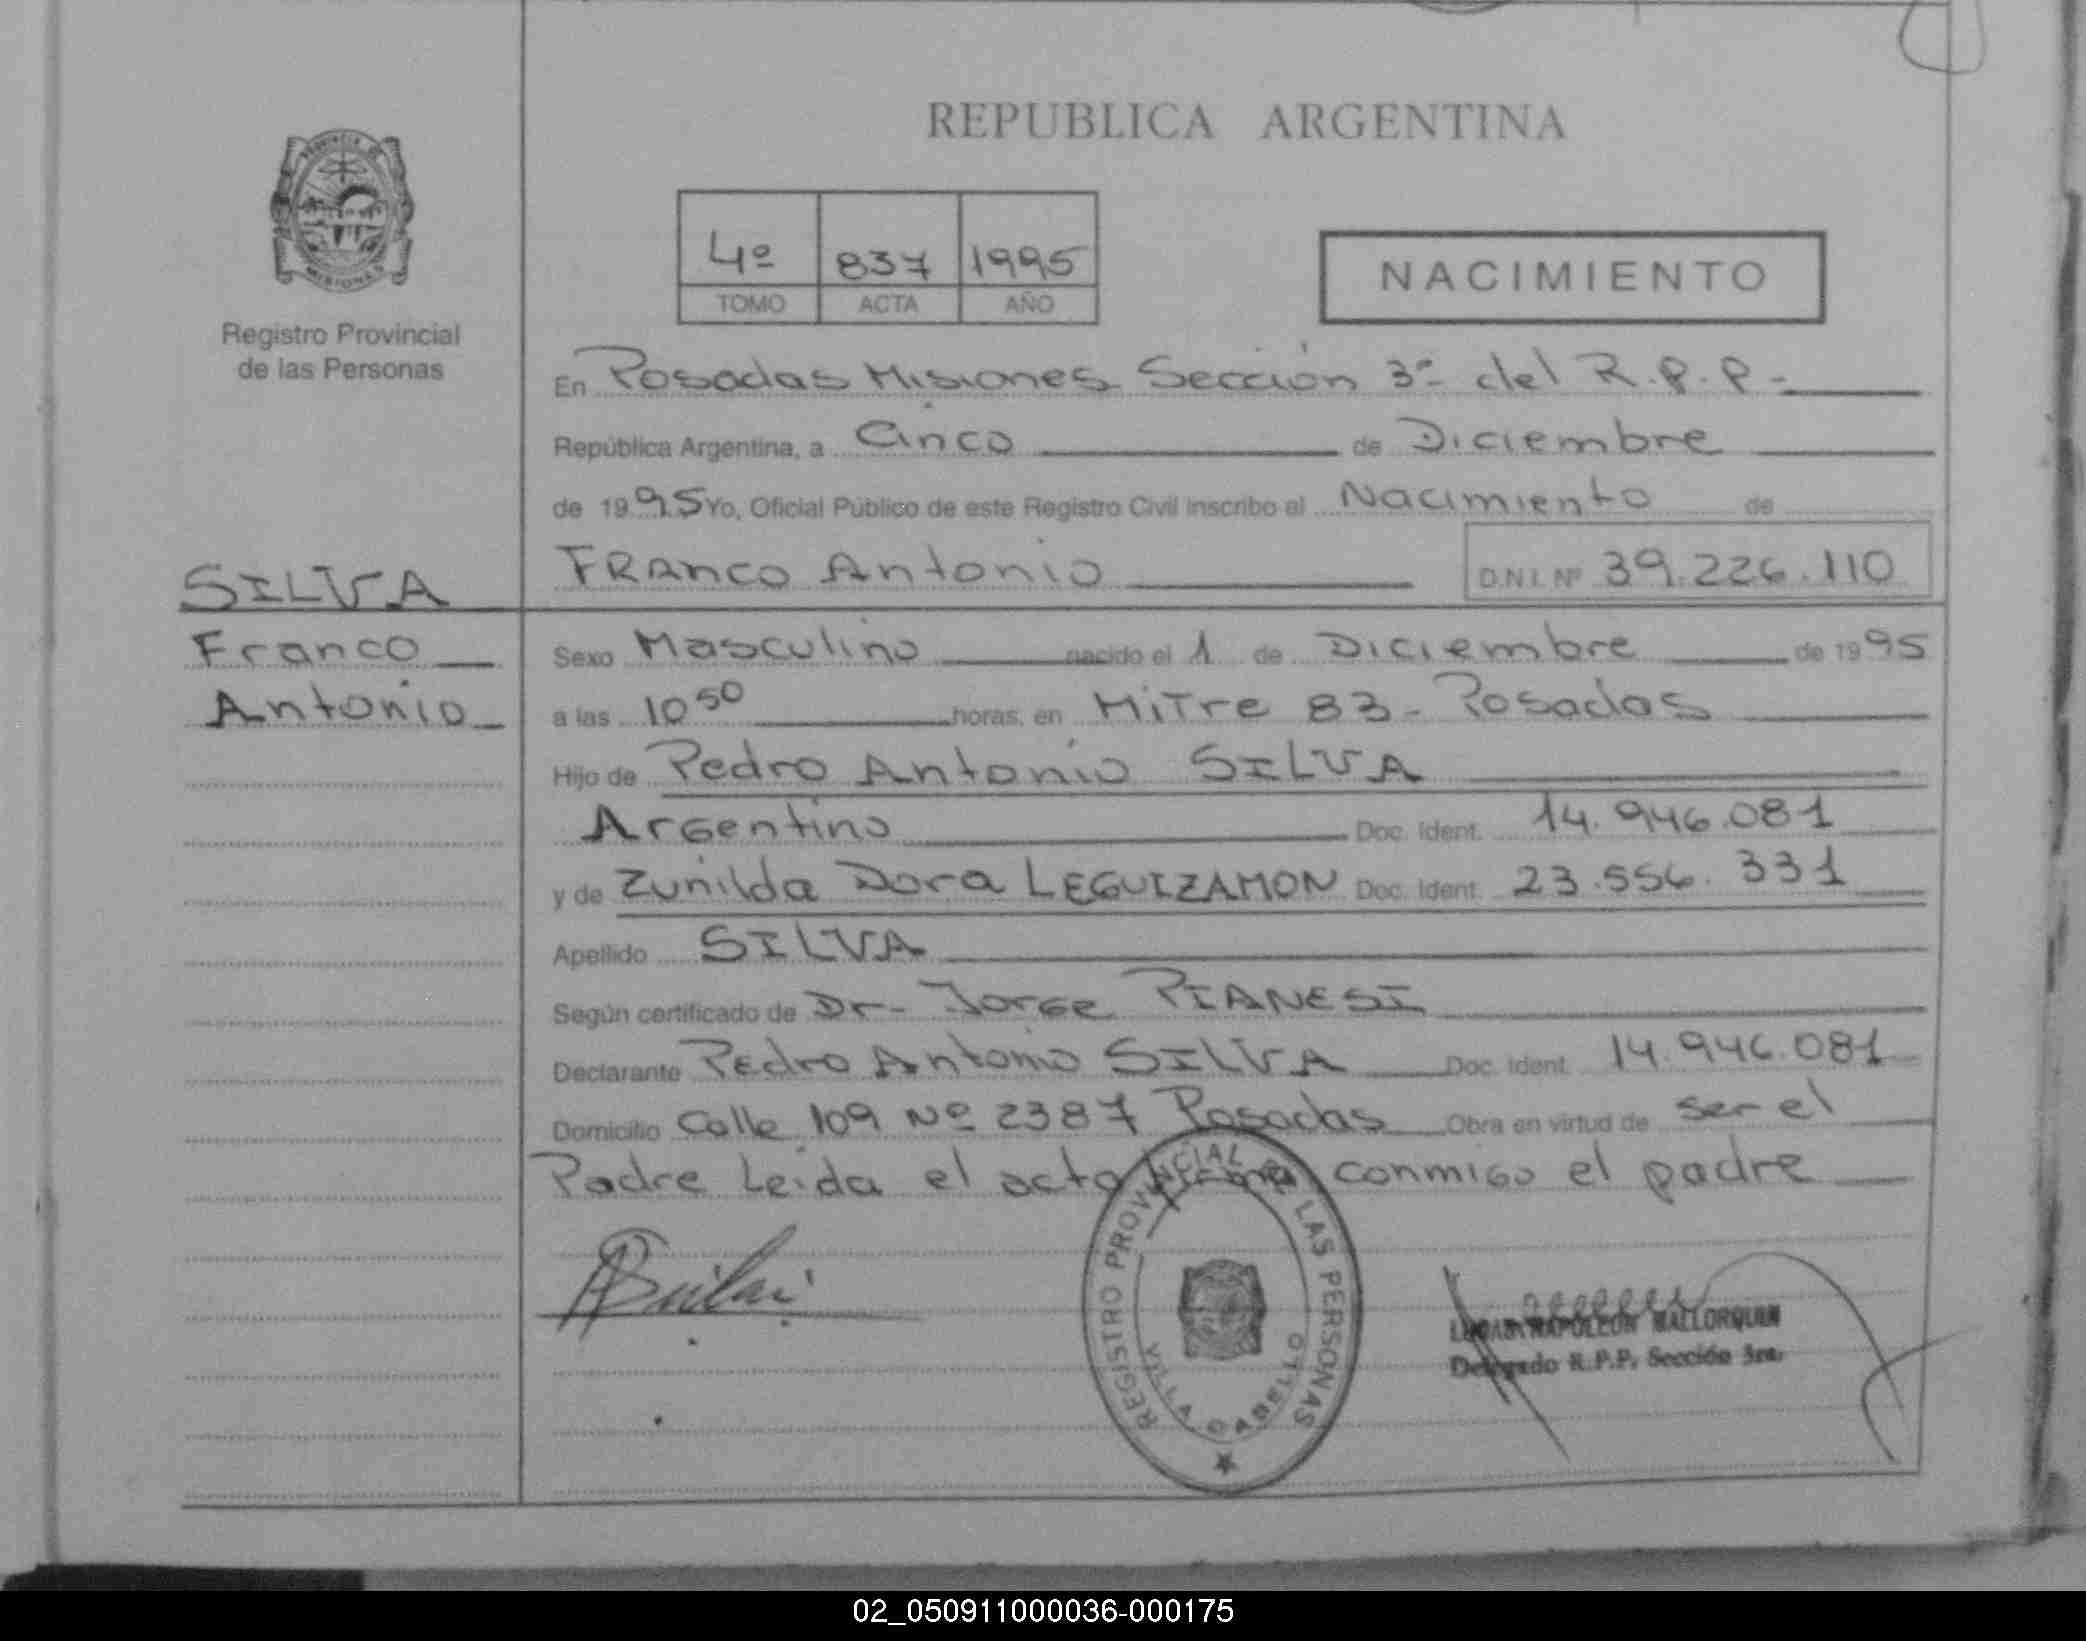 REPUBLICA ARGENTINA
PROVINCIA DE MISIONES
Registro Provincial
de las Personas
4º 837 1995
TOMO ACTA AÑO
NACIMIENTO
En Posadas Misiones Sección 3ª del R.P.P.-
República Argentina, a Cinco de Diciembre
de 1995 Yo, Oficial Público de este Registro Civil inscribo el Nacimiento de
FRANCO Antonio D.N.I. Nº 39.226.110
SILVA
Franco
Antonio
Sexo Masculino nacido el 1 de Diciembre de 1995
a las 10 50 horas, en MiTre 83 - Posadas
Hijo de Pedro Antonio SILVA
Argentino Doc. Ident. 14.946.081
y de Zunilda Dora LEGUIZAMON Doc. Ident. 23.556.331
Apellido SILVA
Según certificado de Dr- Jorge PIANESI
Declarante Pedro Antonio SILVA Doc. Ident. 14.946.081
Domicilio Calle 109 Nº 2387 Posadas Obra en virtud de ser el
Padre Leida el acta firma conmigo el padre
REGISTRO PROVINCIAL DE LAS PERSONAS
VILLA CABELLO
LUCAS NAPOLEON MALLORQUIN
Delegado R.P.P. Sección 3ra.
02_050911000036-000175